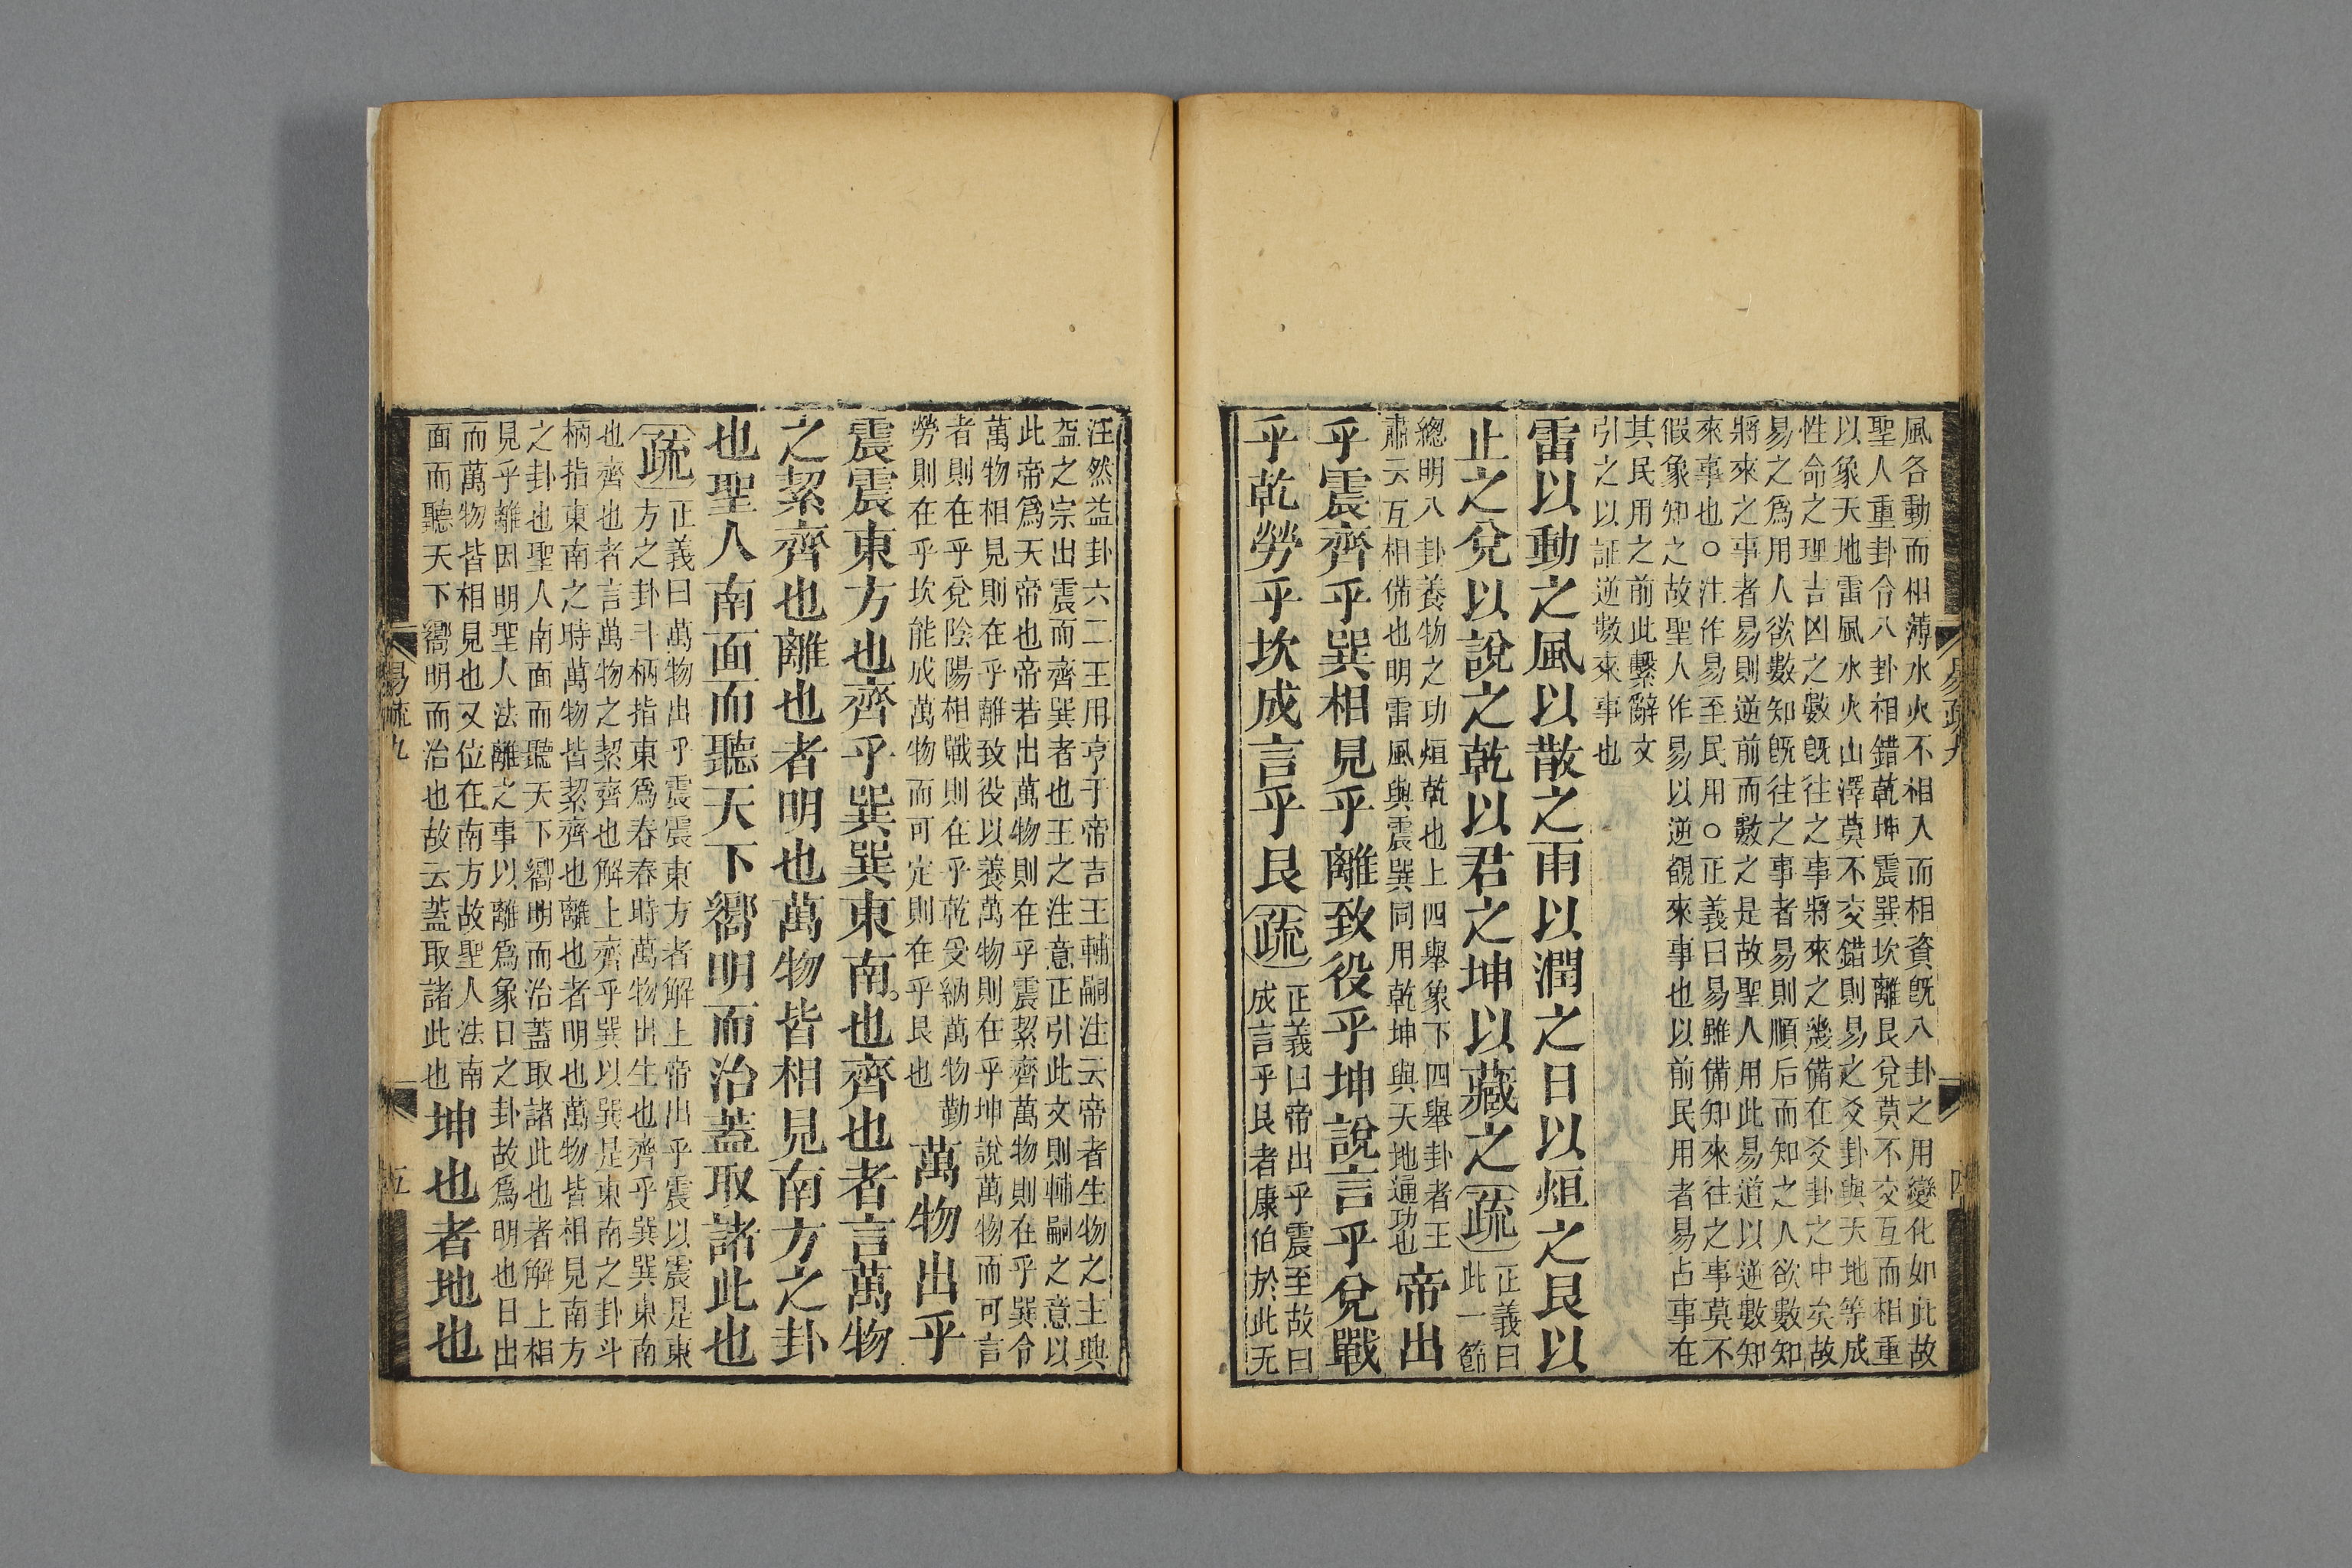 風各動而相薄水火不相入而相資旣八卦之用變化如此故
聖人重卦令八卦相錯乾坤震巽坎離艮兌莫不交互而相重
以象天地雷風水火山澤莫不交錯則易之爻卦與天地等成
性命之理吉凶之數旣往之事將來之幾備在爻卦之中矣故
易之爲用人欲數知旣往之事者易則順后而知之人欲數知
將來之事者易則逆前而數之是故聖人用此易道以逆數知
來事也○注作易至民用○正義曰易雖備知來往之事莫不
假象知之故聖人作易以逆覩來事也以前民用者易占事在
其民用之前此繫辭文
引之以証逆數來事也
雷以動之風以散之雨以潤之日以烜之艮以
止之兌以說之乾以君之坤以藏之疏正義曰
此一節
總明八卦養物之功烜乾也上四舉象下四舉卦者王
肅云互相備也明雷風與震巽同用乾坤與天地通功也帝出
乎震齊乎巽相見乎離致役乎坤說言乎兌戰
乎乾勞乎坎成言乎艮疏正義曰帝出乎震至故曰
成言乎艮者康伯於此无
易疏九
四
注然益卦六二王用亨于帝吉王輔嗣注云帝者生物之主興
益之宗出震而齊巽者也王之注意正引此文則輔嗣之意以
此帝爲天帝也帝若出萬物則在乎震絜齊萬物則在乎巽令
萬物相見則在乎離致役以養萬物則在乎坤說萬物而可言
者則在乎兌陰陽相戰則在乎乾受納萬物勤
勞則在乎坎能成萬物而可定則在乎艮也萬物出乎
震震東方也齊乎巽巽東南也齊也者言萬物
之絜齊也離也者明也萬物皆相見南方之卦
也聖人南面而聽天下嚮明而治蓋取諸此也
疏正義曰萬物出乎震震東方者解上帝出乎震以震是東
方之卦斗柄指東爲春春時萬物出生也齊乎巽巽東南
也齊也者言萬物之絜齊也解上齊乎巽以巽是東南之卦斗
柄指東南之時萬物皆絜齊也離也者明也萬物皆相見南方
之卦也聖人南面而聽天下嚮明而治蓋取諸此也者解上相
見乎離因明聖人法離之事以離爲象日之卦故爲明也日出
而萬物皆相見也又位在南方故聖人法南
面而聽天下嚮明而治也故云蓋取諸此也坤也者地也
易疏九
五